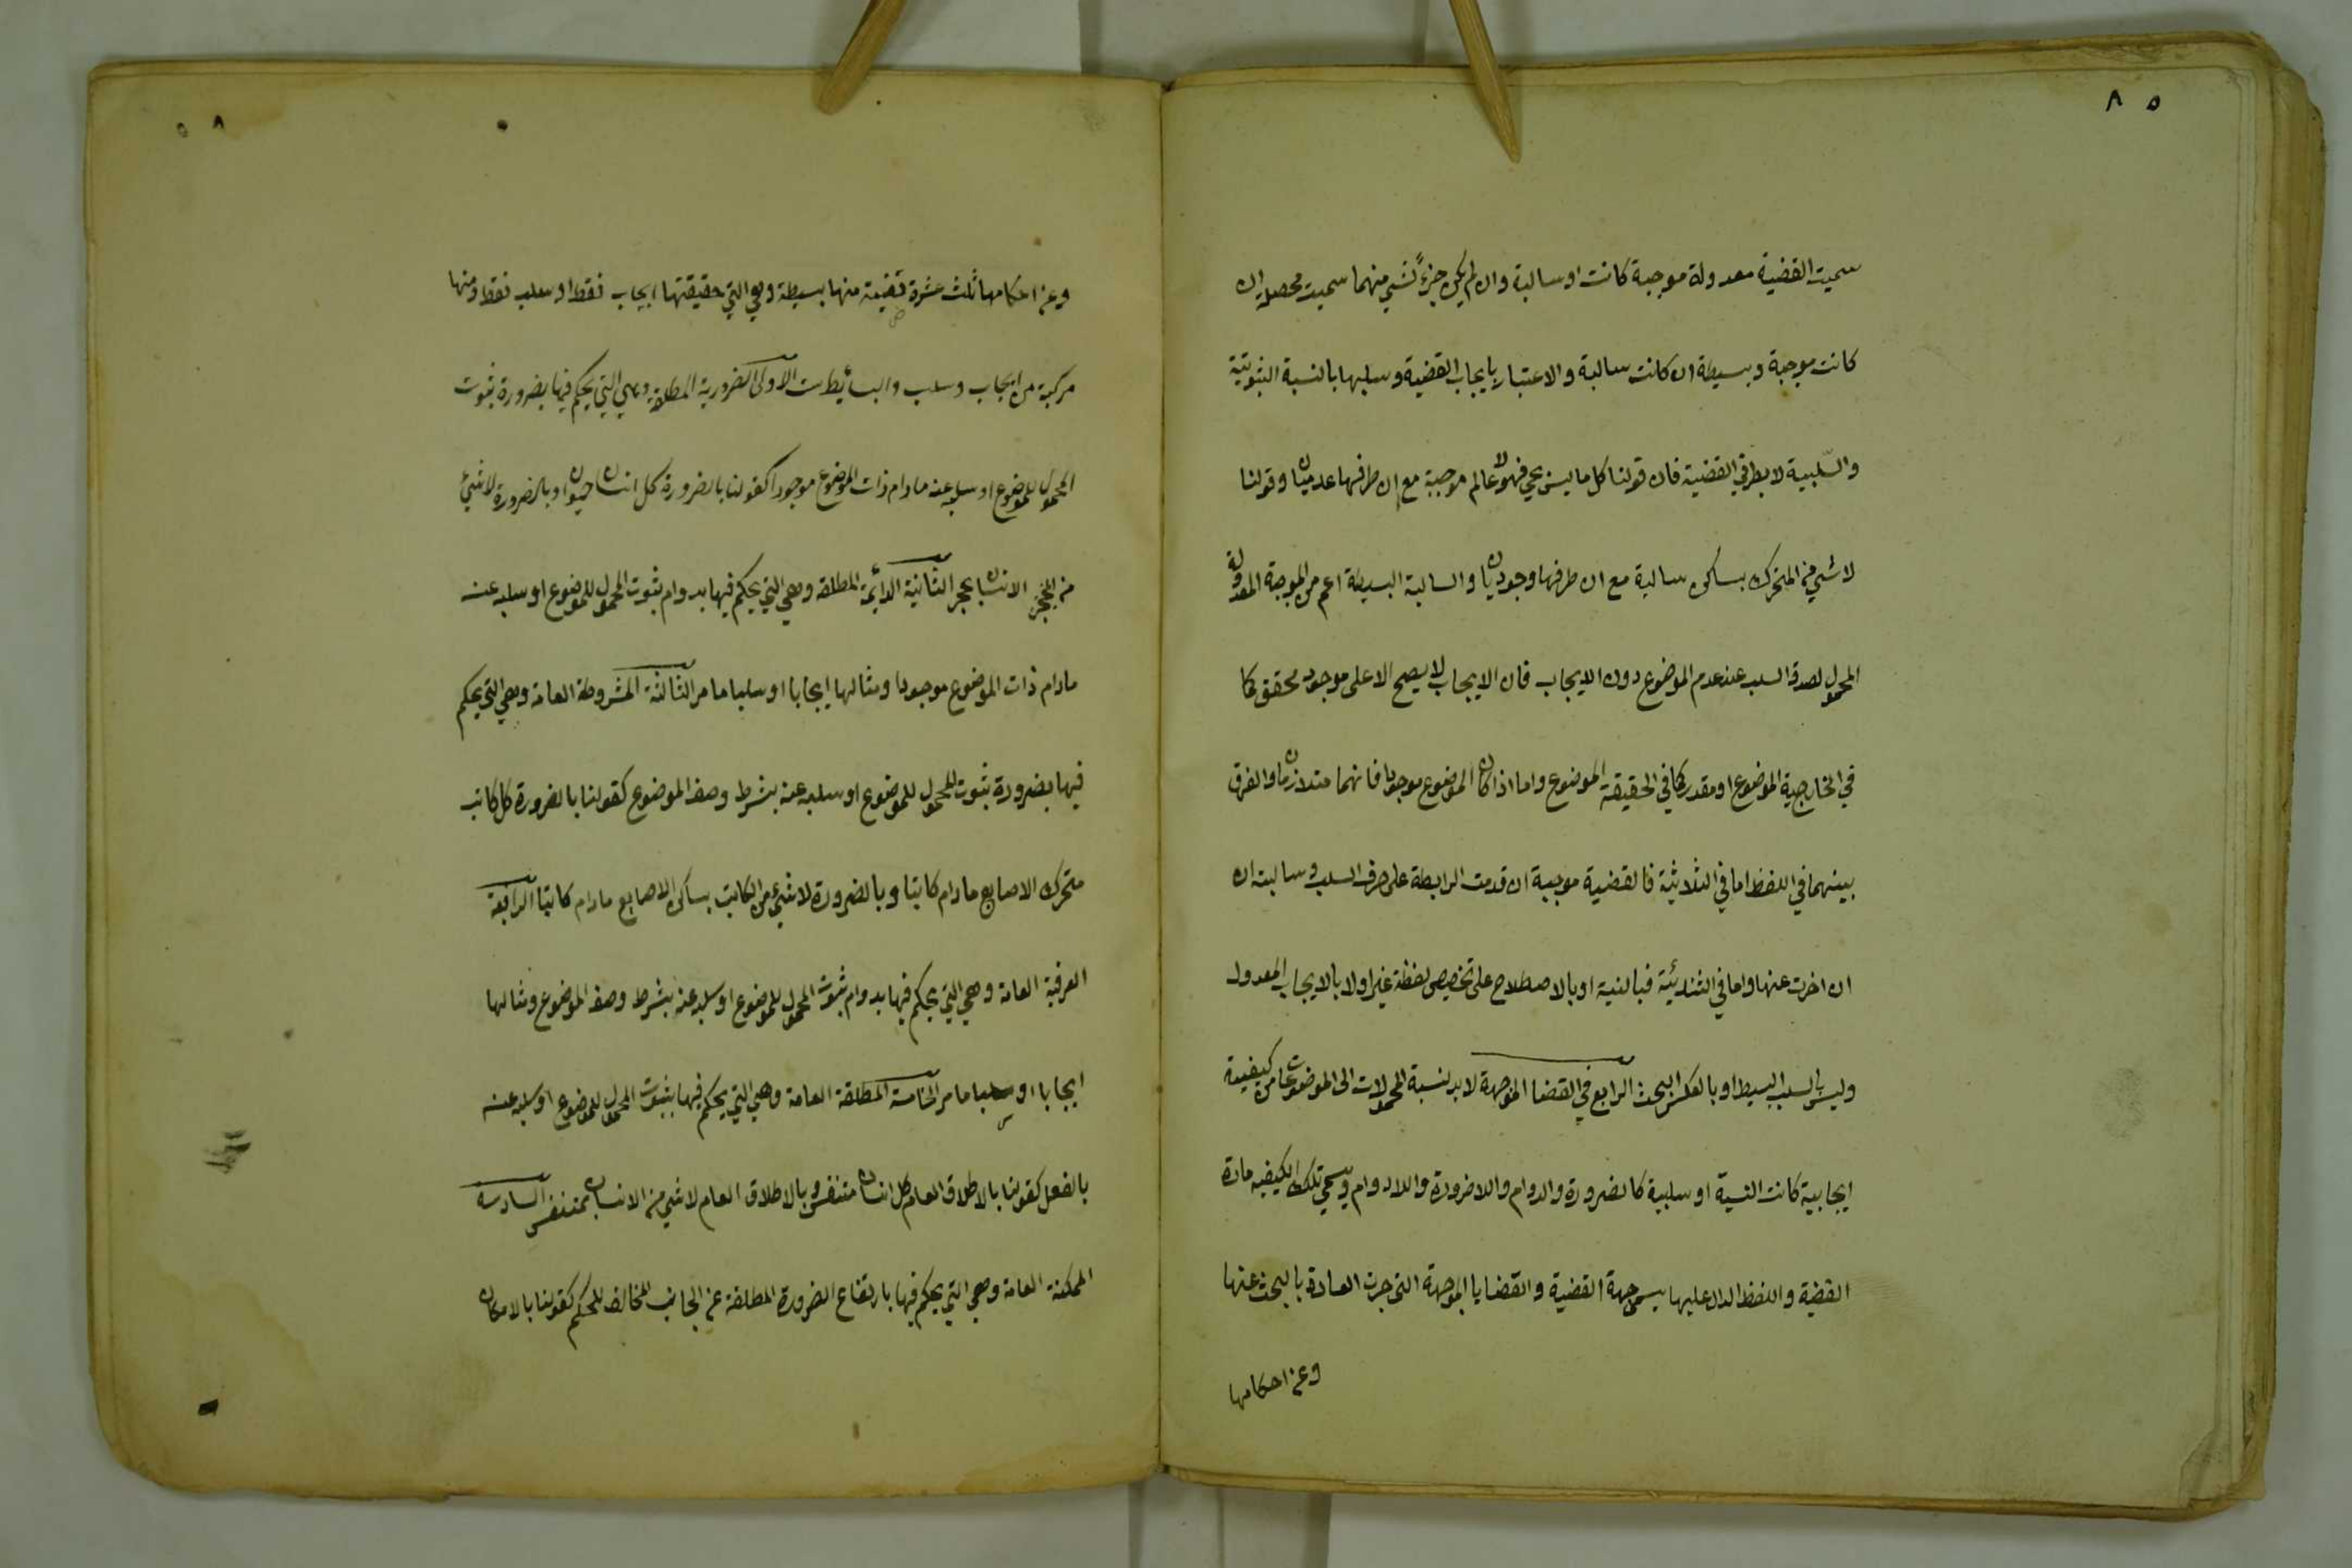 ٨٥
سميت القضية معدولة موجبة كانت او سالبة وان لم يكن جزءً لشي منهما سميت محصلة ان
كانت موجبة وبسيطة ان كانت سالبة والاعتبار بايجاب القضية وسلبها بالنسبة الثبوتية
والسّلبية لا بطرفي القضية فان قولنا كل ما ليس بحي فهو لا عالم موجبة مع ان طرفيها عدميان وقولنا
لا شي من المتحرك بساكن سالبة مع ان طرفيها وجوديان والسالبة البسيطة اعم من الموجبة المعدولة
المحمول لصدق السلب عند عدم الموضوع دون الايجاب فان الايجاب لا يصح الا على موجود محقق كما
في الخارجية الموضوع او مقدر كما في الحقيقة الموضوع واما اذا كان الموضوع موجودا فانهما متلازمان والفرق
بينهما في اللفظ اما في الثلاثية فالقضية موجبة ان قدمت الرابطة على حرف السلب وسالبة ان
ان اخرت عنها واما في الثنائية فبالنية او بالاصطلاح على تخصيص لفظة غير او لا بالايجاب المعدول
وليس بالسلب البسيط او بالعكس البحث الرابع في القضايا الموجهة لا بد لنسبة المحمولات الى الموضوعات من كيفية
ايجابية كانت النسبة او سلبية كالضرورة والدوام واللاضرورة واللادوام ويسمى تلك الكيفيه مادة
القضية واللفظ الدال عليها يسمى جهة القضية والقضايا الموجهة التى جرت العادة بالبحث عنها
وعن احكامها
٥٨
وعن احكامها ثلث عشرة قضية منها بسيطة وهي التي حقيقتها ايجاب فقط او سلب فقط ومنها
مركبة من ايجاب وسلب والبسائط ست الاولى الضرورية المطلقة وهي التي يحكم فيها بضرورة ثبوت
المحمول للموضوع او سلبه عنه مادام ذات الموضوع موجودا كقولنا بالضرورة كل انسان حيوان وبالضرورة لا شئ
من الانسان بحجر الثانية الدائمة المطلقة وهي التي يحكم فيها بدوام ثبوت المحمول للموضوع او سلبه عنه
مادام ذات الموضوع موجودا ومثالها ايجابا او سلبا ما مر الثالثة المشروطة العامة وهي التي يحكم
فيها بضرورة ثبوت المحمول للموضوع او سلبه عنه بشرط وصف الموضوع كقولنا بالضرورة كل كاتب
متحرك الاصابع مادام كاتبا وبالضرورة لا شئ من الكاتب بساكن الاصابع مادام كاتبا الرابعة
العرفية العامة وهي التي يحكم فيها بدوام ثبوت المحمول للموضوع او سلبه عنه بشرط وصف الموضوع ومثالها
ايجابا او سلبا ما مر الخامسة المطلقة العامة وهي التي يحكم فيها بثبوت المحمول للموضوع او سلبه عنه
بالفعل كقولنا بالاطلاق العام كل انسان متنفس وبالاطلاق العام لا شي من الانسان بمتنفس السادسة
الممكنة العامة وهي التي يحكم فيها بارتفاع الضرورة المطلقة عن الجانب المخالف للحكم كقولنا بالامكان